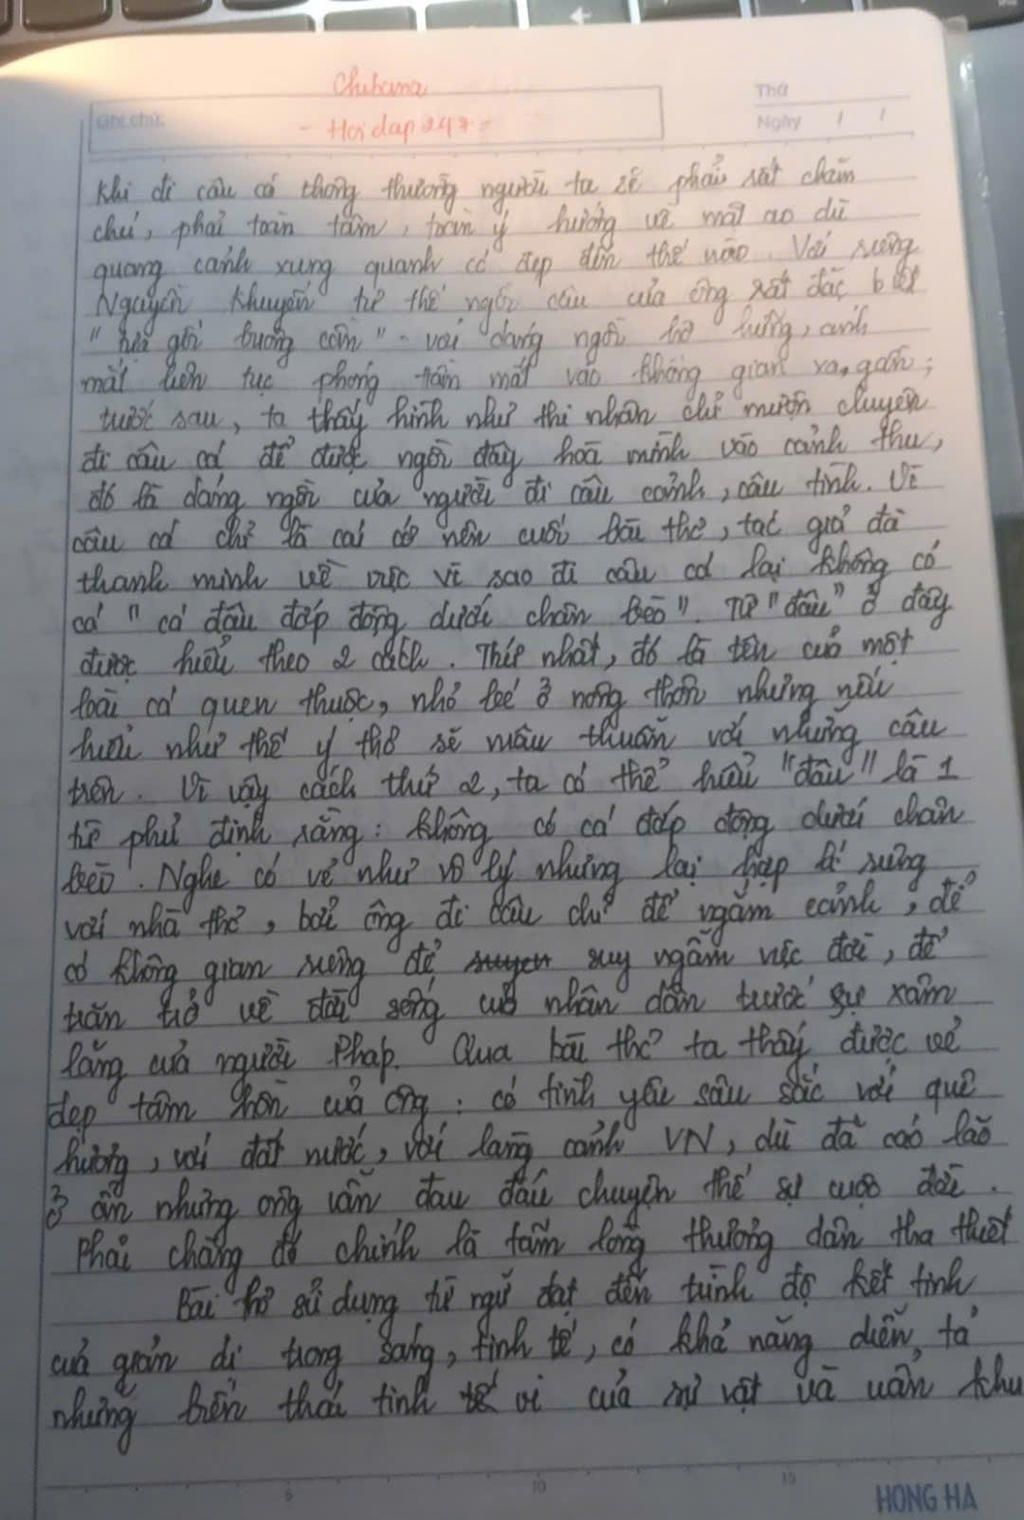 Chihana
Ghi chú:
- Hoidap247 -
Thứ
Ngày / /
Khi đi câu cá thông thường người ta sẽ phải rất chăm
chú, phải toàn tâm, toàn ý hướng về mặt ao dù
quang cảnh xung quanh có đẹp đến thế nào. Với riêng
Nguyễn Khuyến tư thế ngồi câu của ông rất đặc biệt
"tựa gối buông cần" - với dáng ngồi hờ hững, ánh
mắt liên tục phóng tầm mắt vào không gian xa, gần;
trước sau, ta thấy hình như thi nhân chỉ mượn chuyện
đi câu cá để được ngồi đây hoà mình vào cảnh thu,
đó là dáng ngồi của người đi câu cảnh, câu tình. Vì
câu cá chỉ là cái cớ nên cuối bài thơ, tác giả đã
thanh minh về việc vì sao đi câu cá lại không có
cá "cá đâu đớp động dưới chân bèo". Từ "đâu" ở đây
được hiểu theo 2 cách. Thứ nhất, đó là tên của một
loài cá quen thuộc, nhỏ bé ở nông thôn nhưng nếu
hiểu như thế ý thơ sẽ mâu thuẫn với những câu
trên. Vì vậy cách thứ 2, ta có thể hiểu "đâu" là 1
từ phủ định rằng: không có cá đớp động dưới chân
bèo. Nghe có vẻ như vô lý nhưng lại hợp lí riêng
với nhà thơ, bởi ông đi câu chỉ để ngắm cảnh, để
có không gian riêng để suy ngẫm việc đời, để
trăn trở về đời sống của nhân dân trước sự xâm
lăng của người Pháp. Qua bài thơ ta thấy được vẻ
đẹp tâm hồn của ông: có tình yêu sâu sắc với quê
hương, với đất nước, với làng cảnh VN, dù đã cáo lão
ở ẩn nhưng ông vẫn đau đáu chuyện thế sự cuộc đời.
Phải chăng đó chính là tấm lòng thương dân tha thiết
Bài thơ sử dụng từ ngữ đạt đến trình độ kết tinh
của giản dị trong sáng, tinh tế, có khả năng diễn tả
những biến thái tinh vi của sự vật và uẩn khu
5 10 15
HONG HA